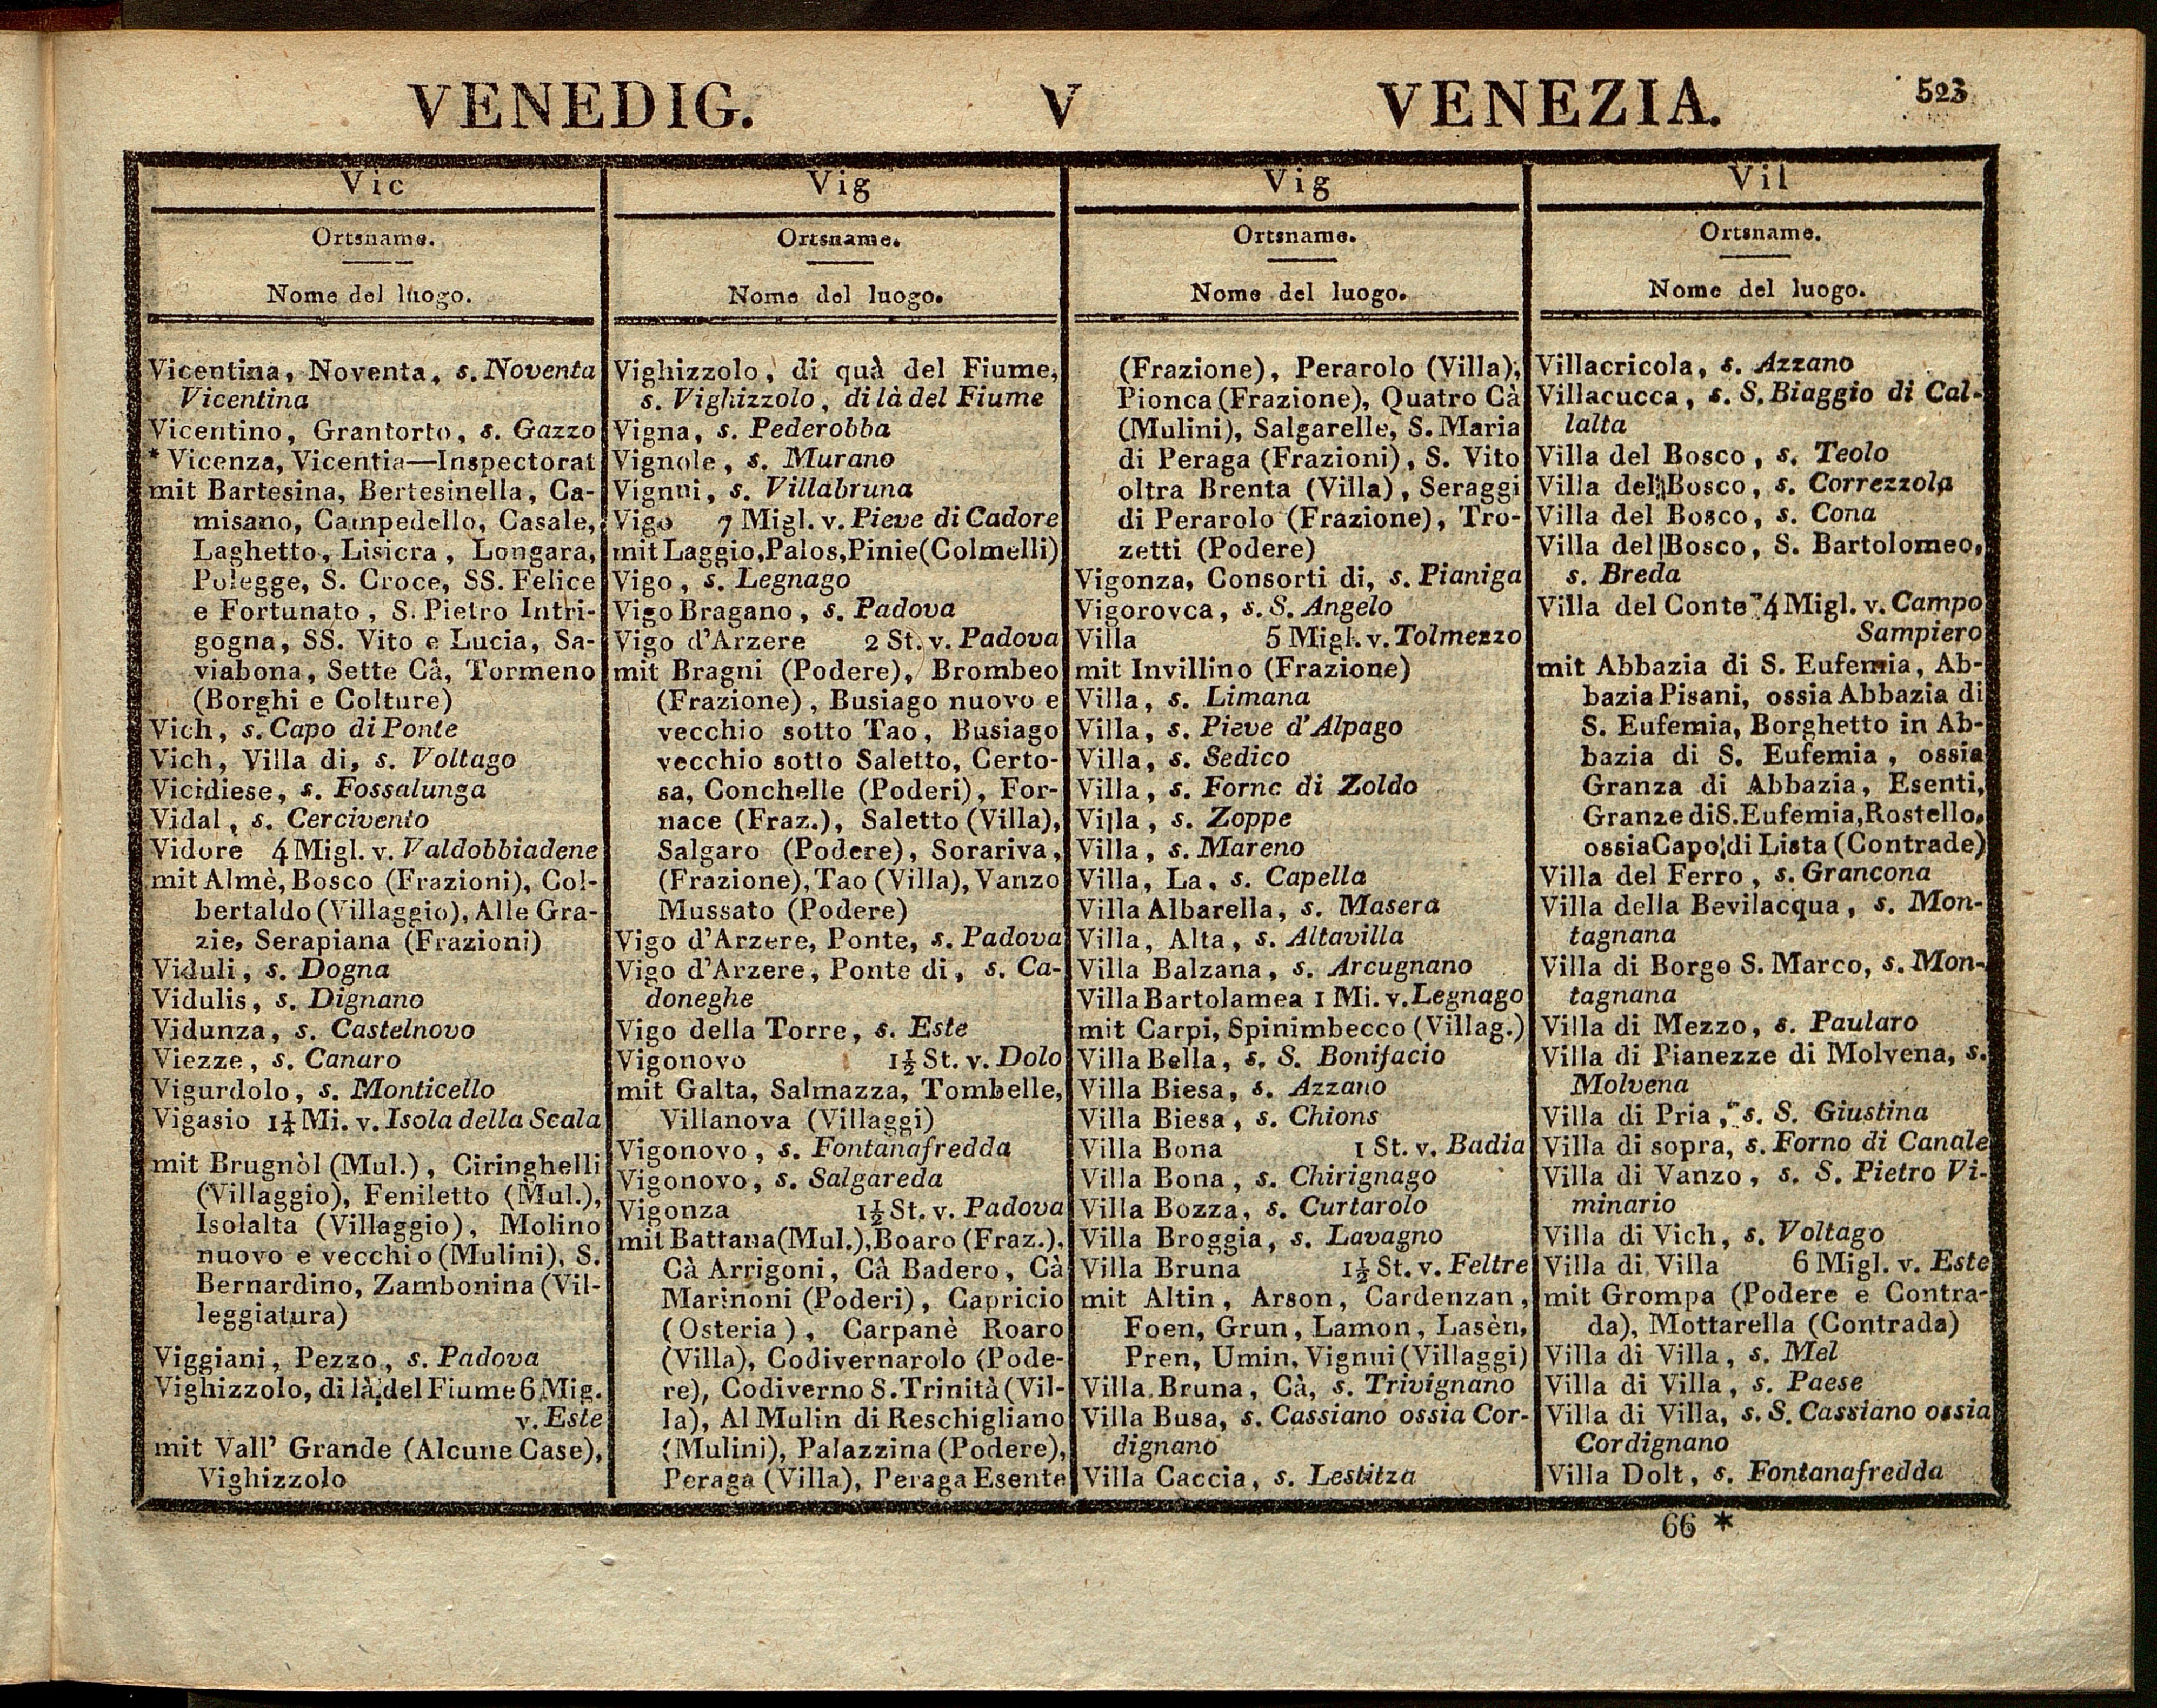 VENEDIG. V VENEZIA. 523
Vic
Ortsname.
Nome del luogo.
Vicentina, Noventa, s. Noventa
Vicentina
Vicentino, Grantorto, s. Gazzo
* Vicenza, Vicentia—Inspectorat
mit Bartesina, Bertesinella, Ca-
misano, Campedello, Casale,
Laghetto, Lisiera, Longara,
Polegge, S. Croce, SS. Felice
e Fortunato, S. Pietro Intri-
gogna, SS. Vito e Lucia, Sa-
viabona, Sette Cà, Tormeno
(Borghi e Colture)
Vich, s. Capo di Ponte
Vich, Villa di, s. Voltago
Vicidiese, s. Fossalunga
Vidal, s. Cercivento
Vidore 4 Migl. v. Valdobbiadene
mit Almè, Bosco (Frazioni), Col-
bertaldo (Villaggio), Alle Gra-
zie, Serapiana (Frazioni)
Viduli, s. Dogna
Vidulis, s. Dignano
Vidunza, s. Castelnovo
Viezze, s. Canaro
Vigurdolo, s. Monticello
Vigasio 1¼ Mi. v. Isola della Scala
mit Brugnòl (Mul.), Ciringhelli
(Villaggio), Feniletto (Mul.),
Isolalta (Villaggio), Molino
nuovo e vecchio (Mulini), S.
Bernardino, Zambonina (Vil-
leggiatura)
Viggiani, Pezzo, s. Padova
Vighizzolo, di là del Fiume 6 Mig.
v. Este
mit Vall' Grande (Alcune Case),
Vighizzolo
Vig
Ortsname.
Nome del luogo.
Vighizzolo, di quà del Fiume,
s. Vighizzolo, di là del Fiume
Vigna, s. Pederobba
Vignole, s. Murano
Vignui, s. Villabruna
Vigo 7 Migl. v. Pieve di Cadore
mit Laggio, Palos, Pinie (Colmelli)
Vigo, s. Legnago
Vigo Bragano, s. Padova
Vigo d'Arzere 2 St. v. Padova
mit Bragni (Podere), Brombeo
(Frazione), Busiago nuovo e
vecchio sotto Tao, Busiago
vecchio sotto Saletto, Certo-
sa, Conchelle (Poderi), For-
nace (Fraz.), Saletto (Villa),
Salgaro (Podere), Sorariva,
(Frazione), Tao (Villa), Vanzo
Mussato (Podere)
Vigo d'Arzere, Ponte, s. Padova
Vigo d'Arzere, Ponte di, s. Ca-
doneghe
Vigo della Torre, s. Este
Vigonovo 1½ St. v. Dolo
mit Galta, Salmazza, Tombelle,
Villanova (Villaggi)
Vigonovo, s. Fontanafredda
Vigonovo, s. Salgareda
Vigonza 1½ St. v. Padova
mit Battana (Mul.), Boaro (Fraz.),
Cà Arrigoni, Cà Badero, Cà
Marinoni (Poderi), Capricio
(Osteria), Carpanè Roaro
(Villa), Codivernarolo (Pode-
re), Codiverno S. Trinità (Vil-
la), Al Mulin di Reschigliano
(Mulini), Palazzina (Podere),
Peraga (Villa), Peraga Esente
Vig
Ortsname.
Nome del luogo.
(Frazione), Perarolo (Villa),
Pionca (Frazione), Quatro Cà
(Mulini), Salgarelle, S. Maria
di Peraga (Frazioni), S. Vito
oltra Brenta (Villa), Seraggi
di Perarolo (Frazione), Tro-
zetti (Podere)
Vigonza, Consorti di, s. Pianiga
Vigorovca, s. S. Angelo
Villa 5 Migl. v. Tolmezzo
mit Invillino (Frazione)
Villa, s. Limana
Villa, s. Pieve d'Alpago
Villa, s. Sedico
Villa, s. Forno di Zoldo
Villa, s. Zoppe
Villa, s. Mareno
Villa, La, s. Capella
Villa Albarella, s. Masera
Villa, Alta, s. Altavilla
Villa Balzana, s. Arcugnano
Villa Bartolamea 1 Mi. v. Legnago
mit Carpi, Spinimbecco (Villag.)
Villa Bella, s. S. Bonifacio
Villa Biesa, s. Azzano
Villa Biesa, s. Chions
Villa Bona 1 St. v. Badia
Villa Bona, s. Chirignago
Villa Bozza, s. Curtarolo
Villa Broggia, s. Lavagno
Villa Bruna 1½ St. v. Feltre
mit Altin, Arson, Cardenzan,
Foen, Grun, Lamon, Lasèn,
Pren, Umin, Vignui (Villaggi)
Villa Bruna, Cà, s. Trivignano
Villa Busa, s. Cassiano ossia Cor-
dignano
Villa Caccia, s. Lestitza
Vil
Ortsname.
Nome del luogo.
Villacricola, s. Azzano
Villacucca, s. S. Biaggio di Cal-
lalta
Villa del Bosco, s. Teolo
Villa del Bosco, s. Correzzola
Villa del Bosco, s. Cona
Villa del Bosco, S. Bartolomeo,
s. Breda
Villa del Conte 4 Migl. v. Campo
Sampiero
mit Abbazia di S. Eufemia, Ab-
bazia Pisani, ossia Abbazia di
S. Eufemia, Borghetto in Ab-
bazia di S. Eufemia, ossia
Granza di Abbazia, Esenti,
Granze di S. Eufemia, Rostello,
ossia Capo di Lista (Contrade)
Villa del Ferro, s. Grancona
Villa della Bevilacqua, s. Mon-
tagnana
Villa di Borgo S. Marco, s. Mon-
tagnana
Villa di Mezzo, s. Paularo
Villa di Pianezze di Molvena, s.
Molvena
Villa di Pria, s. S. Giustina
Villa di sopra, s. Forno di Canale
Villa di Vanzo, s. S. Pietro Vi-
minario
Villa di Vich, s. Voltago
Villa di Villa 6 Migl. v. Este
mit Grompa (Podere e Contra-
da), Mottarella (Contrada)
Villa di Villa, s. Mel
Villa di Villa, s. Paese
Villa di Villa, s. S. Cassiano ossia
Cordignano
Villa Dolt, s. Fontanafredda
66 *